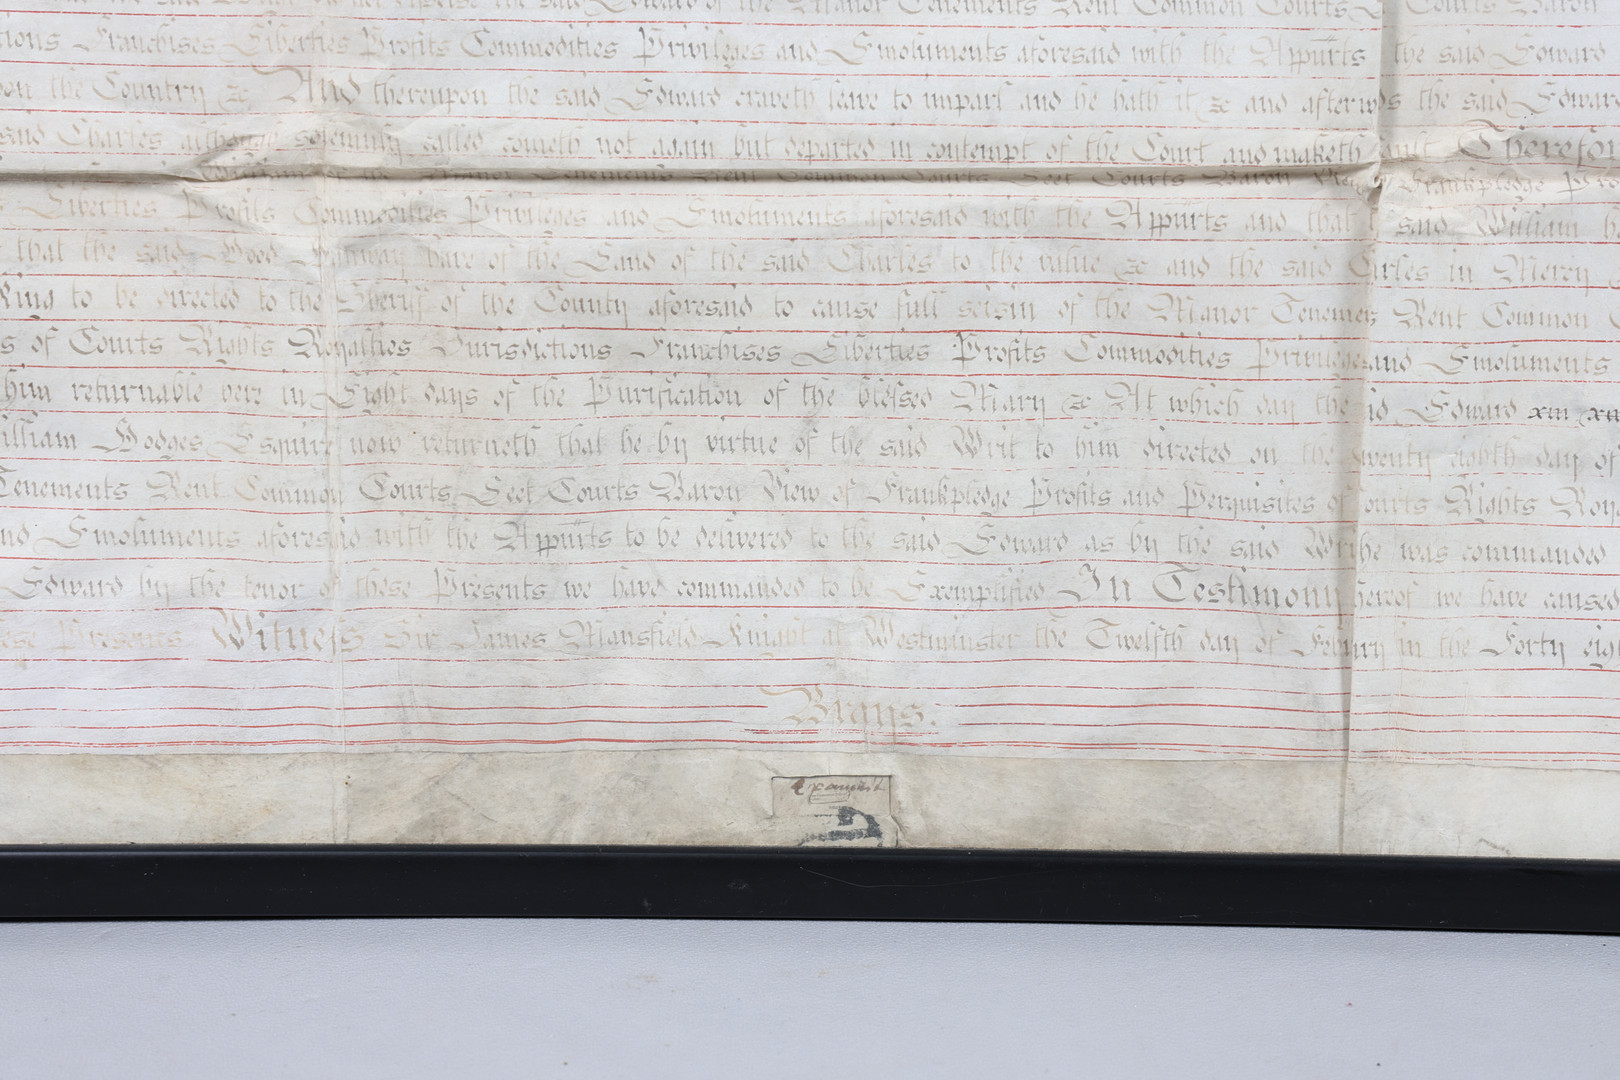 the said Edward of the Manor Tenements Rent Common Courts Courts Baron
Franchises Liberties Profits Commodities Privileges and Emoluments aforesaid with the Appurts the said Edward
the Country &c And thereupon the said Edward craveth leave to imparl and he hath it &c and afterwds the said Edward
said Charles although solemnly called cometh not again but departed in contempt of the Court and maketh Therefor
Manor Tenements Rent Common Courts Leet Courts Baron Frankpledge
Liberties Profits Commodities Privileges and Emoluments aforesaid with the Appurts and that said William
that the said have of the Land of the said Charles to the value &c and the said in Mercy
King to be directed to the Sheriff of the County aforesaid to cause full seisin of the Manor Tenements Rent Common
s of Courts Rights Royalties Jurisdictions Franchises Liberties Profits Commodities Privileges and Emoluments
him returnable here in Eight days of the Purification of the blessed Mary &c At which day the Edward
William Hodges Esquire now returneth that he by virtue of the said Writ to him directed on the twenty eighth day of
Tenements Rent Common Courts Leet Courts Baron View of Frankpledge Profits and Perquisites of Courts Rights
Emoluments aforesaid with the Appurts to be delivered to the said Edward as by the said Writ he was commanded
Edward by the tenor of these Presents we have commanded to be Exemplified In Testimony hereof we have caused
Presents Witness Sir James Mansfield Knight at Westminster the Twelfth day of in the Forty
Brays.